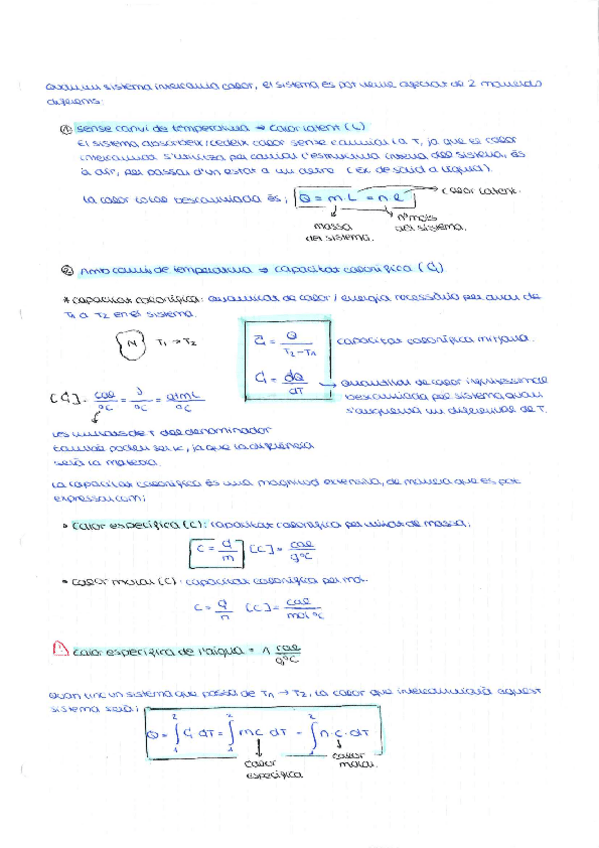 Quan un sistema intercanvia calor, el sistema es pot veure afectat de 2 maneres
diferents:
① sense canvi de temperatura ⇒ calor latent (L)
El sistema absorbeix/cedeix calor sense canviar la T, ja que es calor
intercanviat s'utilitza per canviar l'estructura interna del sistema, és
a dir, per passar d'un estat a un altre (Ex: de sòlid a líquid).
La calor total bescanviada és; Q = m·L = n·l → calor latent.
massa
del sistema.
nº mols
del sistema.
② Amb canvi de temperatura ⇒ capacitat calorífica (C)
* capacitat calorífica: quantitat de calor / energia necessària per anar de
T1 a T2 en el sistema.
M T1 → T2
C̄ = Q / T2-T1 capacitat calorífica mitjana.
C = dQ / dT → quantitat de calor
bescanviada pel sistema quan
s'augmenta un diferencial de T.
[C] = cal/ºC = J/ºC = atm·L/ºC
Les unitats de T del denominador
també poden ser K, ja que la diferència
serà la mateixa.
La capacitat calorífica és una magnitud extensiva, de manera que es pot
expressar com;
• Calor específica (c): capacitat calorífica per unitat de massa;
c = C/m [c] = cal/gºC
• Calor molar (c): capacitat calorífica per mol.
c = C/n [c] = cal/mol ºC
! Calor específica de l'aigua = 1 cal/gºC
Quan tinc un sistema que passa de T1 → T2, la calor que intercanviarà aquest
sistema serà;
Q = ∫₁² C dT = ∫₁² m c dT = ∫₁² n·c·dT
calor
específica
calor
molar.